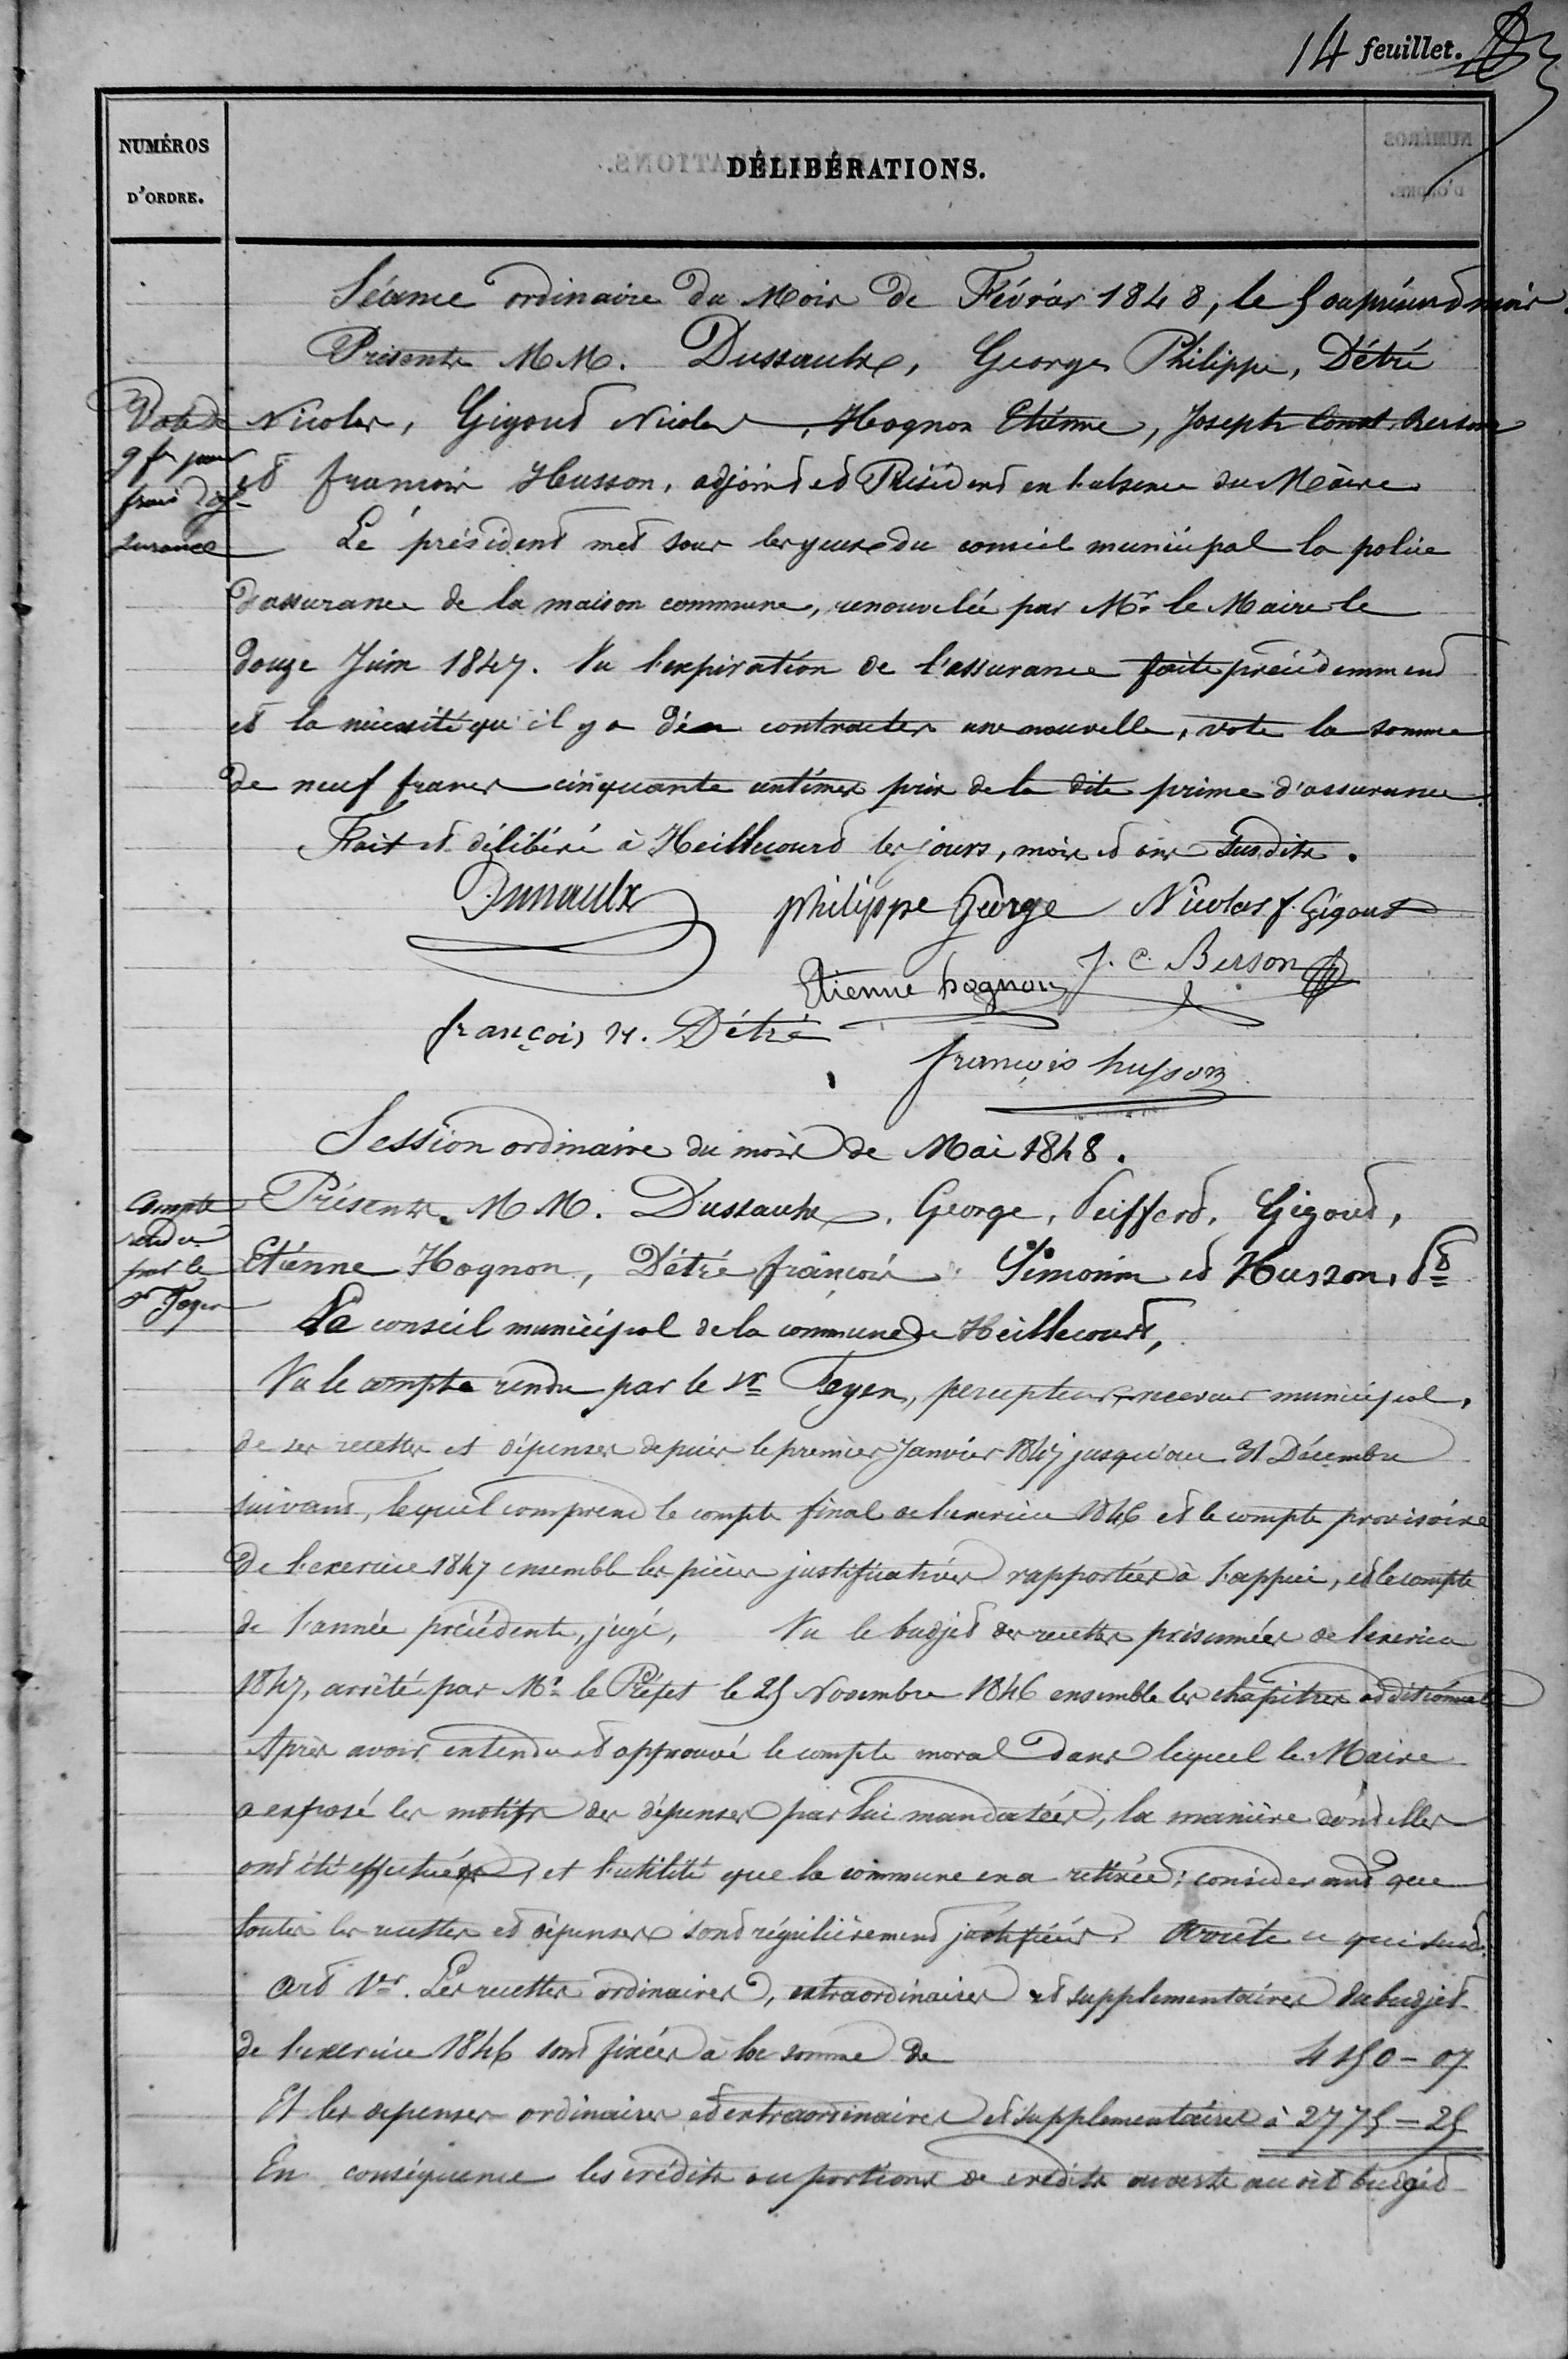 14 feuillet.
NUMÉROS
D'ORDRE.
DÉLIBÉRATIONS.
Séance ordinaire du Mois de Févrièr 1848, le 5 au présent mois.
Présents MM. Dussaulx, George Philippe, Détré
Nicolas, Gigout Nicolas, Hognon Etienne, Joseph Const. Berson
et françois Husson, adjoint et Président en l'absence du Maire
Vote de
9 fr pour
frais d'as-
surance
Le président met sous les yeux du conseil municipal la police
d'assurance de la maison commune, renouvelée par Mr. le Maire le
douze Juin 1847. Vu l'expiration de l'assurance faite précédemment
et la nécessité qu'il y a d'en contracter une nouvelle, vote la somme
de neuf francs cinquante centimes prix de la dite prime d'assurance
Fait et délibéré à Heillecourt les jours, mois et an susdits.
Dussaulx
philippe George
Nicolas f. Gigout
Etienne hognon
J. C. Berson
françois N. Détré
françois husson
Session ordinaire du mois de Mai 1848.
Compte
rendu
par le
Sr Feyen
Présents. MM. Dussaulx, George, Peiffert, Gigout,
Etienne Hognon, Détré françois, Simonin et Husson, Pt
Le conseil municipal de la commune de Heillecourt,
Vu le compte rendu par le Sr Feyen, percepteur, receveur municipal,
de ses recettes et dépenses depuis le premier Janvier 1847 jusqu'au 31 Décembre
suivant, lequel comprend le compte final de l'exercice 1846 et le compte provisoire
de l'exercice 1847 ensemble les pièces justificatives rapportées à l'appui, et le compte
de l'année précédente, jugé, Vu le budjet des recettes présumées de l'exercice
1847, arrêté par Mr. le Préfet le 25 Novembre 1846 ensemble les chapitres additionnels
Après avoir entendu et approuvé le compte moral dans lequel le Maire
a exposé les motifs des dépenses par lui mandatées, la manière dont elles
ont été effectuées, et l'utilité que la commune en a retirée; considérant que
toutes les recettes et dépenses sont régulièrement justifiées. Arrête ce qui suit.
Art 1er. Les recettes ordinaires, extraordinaires et supplementaires du budjet
de l'exercice 1846 sont fixées à la somme de 4150 - 07
Et les depenses ordinaires et extraordinaires et supplementaires à 2775 = 25
En conséquence les crédits ou portions de crédits ouverts au dit budjet